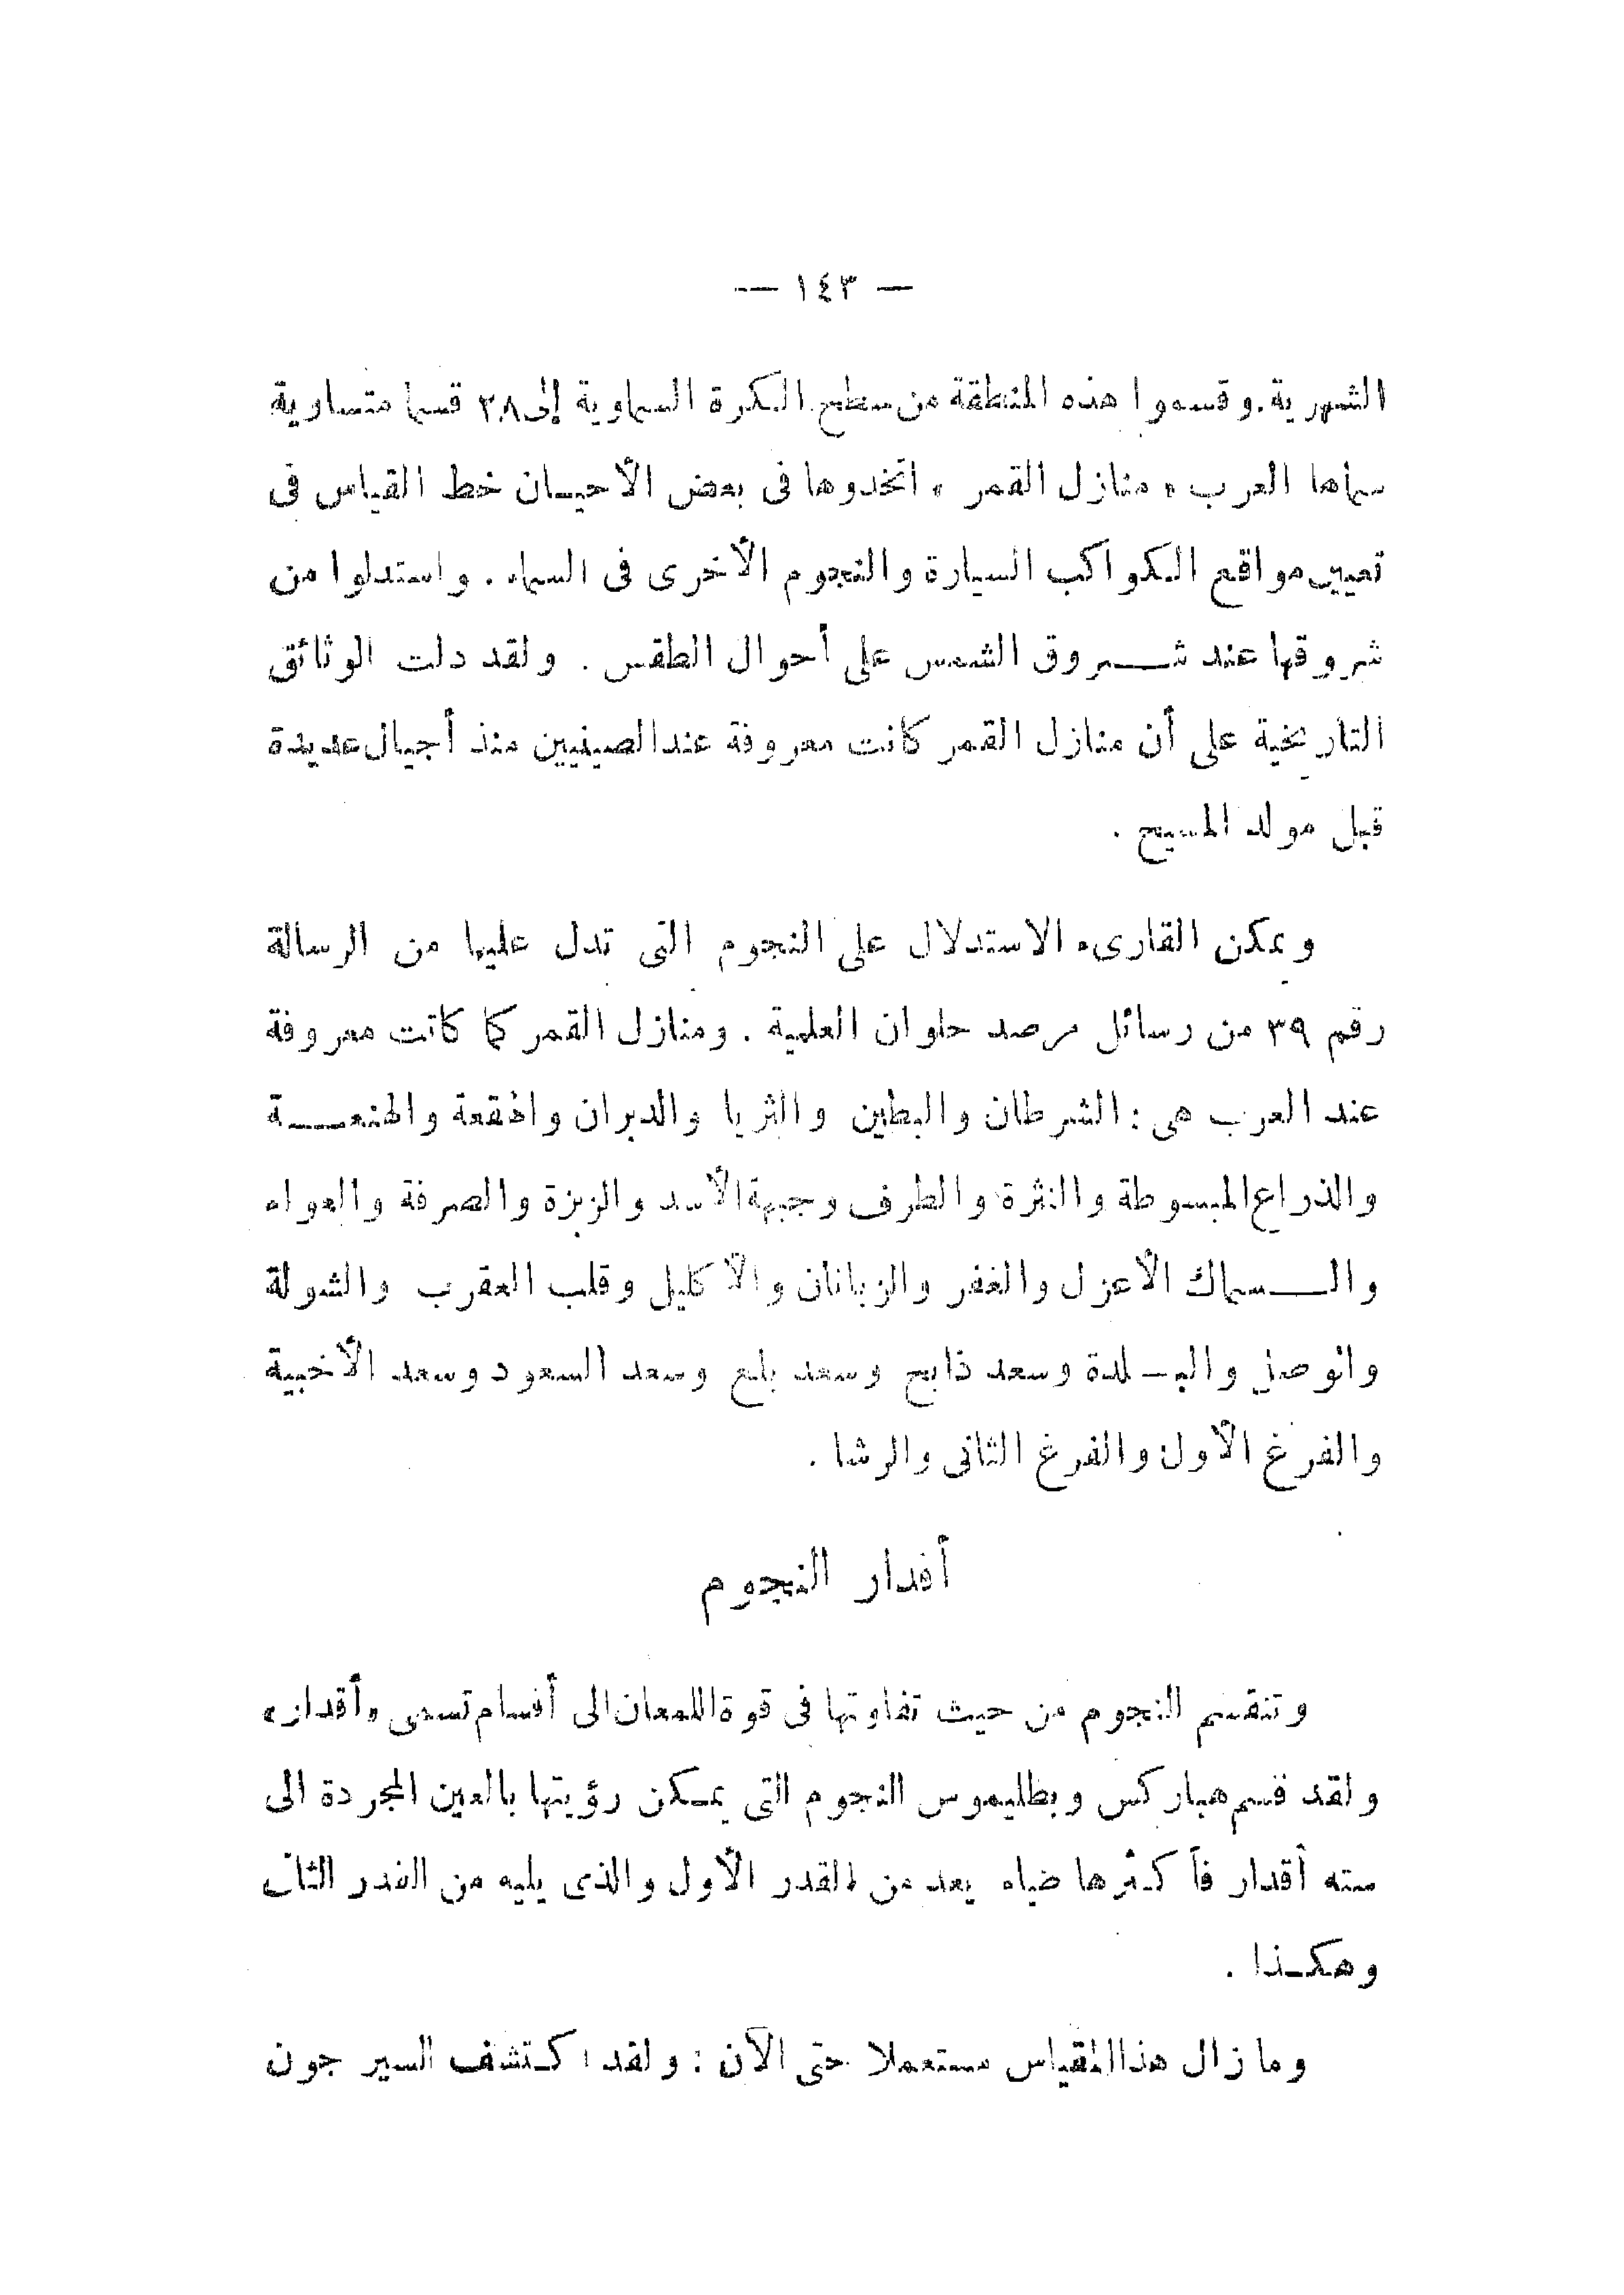 — ١٤٣ —
الشهرية. وقسموا هذه المنطقة من سطح الكرة السماوية إلى ٢٨ قسما متساوية
سماها العرب « منازل القمر » اتخدوها فى بعض الأحيان خط القياس فى
تعيين مواقع الكواكب السيارة والنجوم الأخرى فى السماء . واستدلوا من
شروقها عند شروق الشمس على أحوال الطقس . ولقد دلت الوثائق
التاريخية على أن منازل القمر كانت معروفة عند الصينيين منذ أجيال عديدة
قبل مولد المسيح .
ويمكن القارىء الاستدلال على النجوم التى تدل عليها من الرسالة
رقم ٣٩ من رسائل مرصد حلوان العلمية . ومنازل القمر كما كانت معروفة
عند العرب هى : الشرطان والبطين والثريا والدبران والهقعة والهنعة
والذراع المبسوطة والنثرة والطرف وجبهة الأسد والزبزة والصرفة والعواء
والسماك الأعزل والغفر والزبانان والأكليل وقلب العقرب والشولة
والوصل والبلدة وسعد ذابح وسعد بلع وسعد السعود وسعد الأخبية
والفرغ الأول والفرغ الثانى والرشا .
أقدار النجوم
وتنقسم النجوم من حيث تفاوتها فى قوة اللمعان الى أقسام تسمى «أقدار»
ولقد قسم هباركس وبطليموس النجوم التى يمكن رؤيتها بالعين المجردة الى
سته أقدار فأكثرها ضياء يعد من القدر الأول والذى يليه من القدر الثانى
وهكذا .
وما زال هذا المقياس مستعملا حتى الآن : ولقد اكتشف السير جون